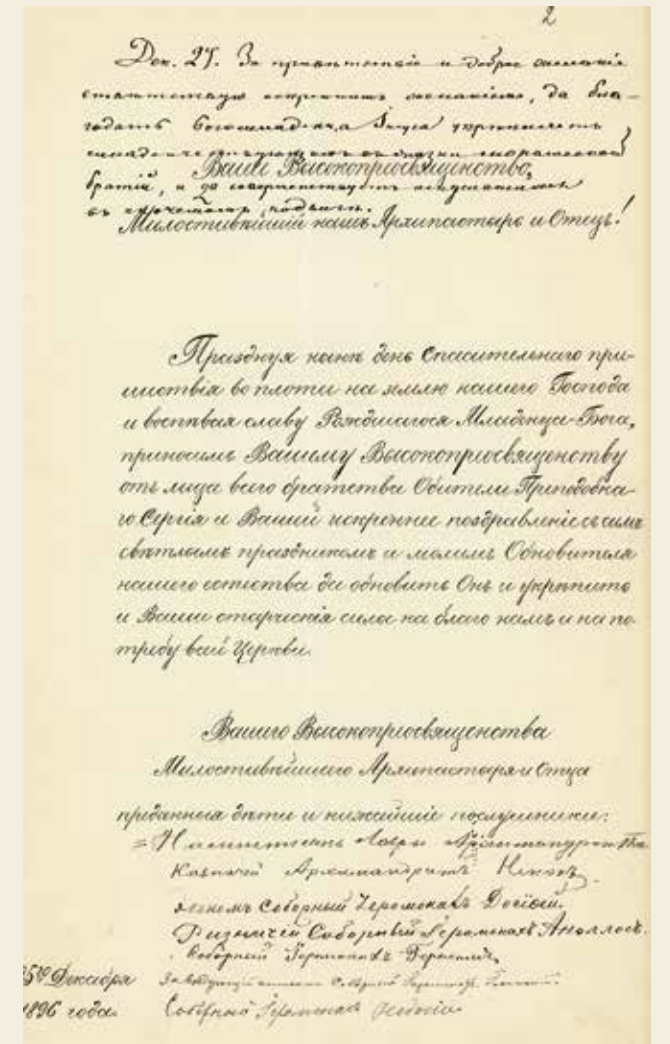 2
Дек. 27. За приветствие и доброе желание
ответствую искреннимъ желаніемъ, да бла-
годать Богомладенца Іисуса укрѣпляетъ
Ваше Высокопреосвященство,
братій, и да совершенствуетъ
въ подвигѣ.
Милостивѣйшій нашъ Архипастырь и Отецъ!
Празднуя нынѣ день спасительнаго при-
шествія во плоти на землю нашего Господа
и воспѣвая славу Рождшагося Младенца-Бога,
приносимъ Вашему Высокопреосвященству
отъ лица всего братства Обители Преподобна-
го Сергія и Вашей искреннее поздравленіе съ симъ
свѣтлымъ праздникомъ и молимъ Обновителя
нашего естества да обновитъ Онъ и укрѣпитъ
и Ваши старческія силы на благо намъ и на по-
требу всей Церкви.
Вашего Высокопреосвященства
Милостивѣйшаго Архипастыря и Отца
преданныя дѣти и нижайшіе послушники:
Намѣстникъ Лавры Архимандритъ Па
Казначей Архимандритъ Никонъ
Экономъ Соборный Іеромонахъ Досіѳей
Ризничій Соборный Іеромонахъ Аполлосъ
Соборный Іеромонахъ
25го Декабря
Завѣдующій Соборный Іеромонахъ
1896 года.
Соборный Іеромонахъ Ѳеодосій